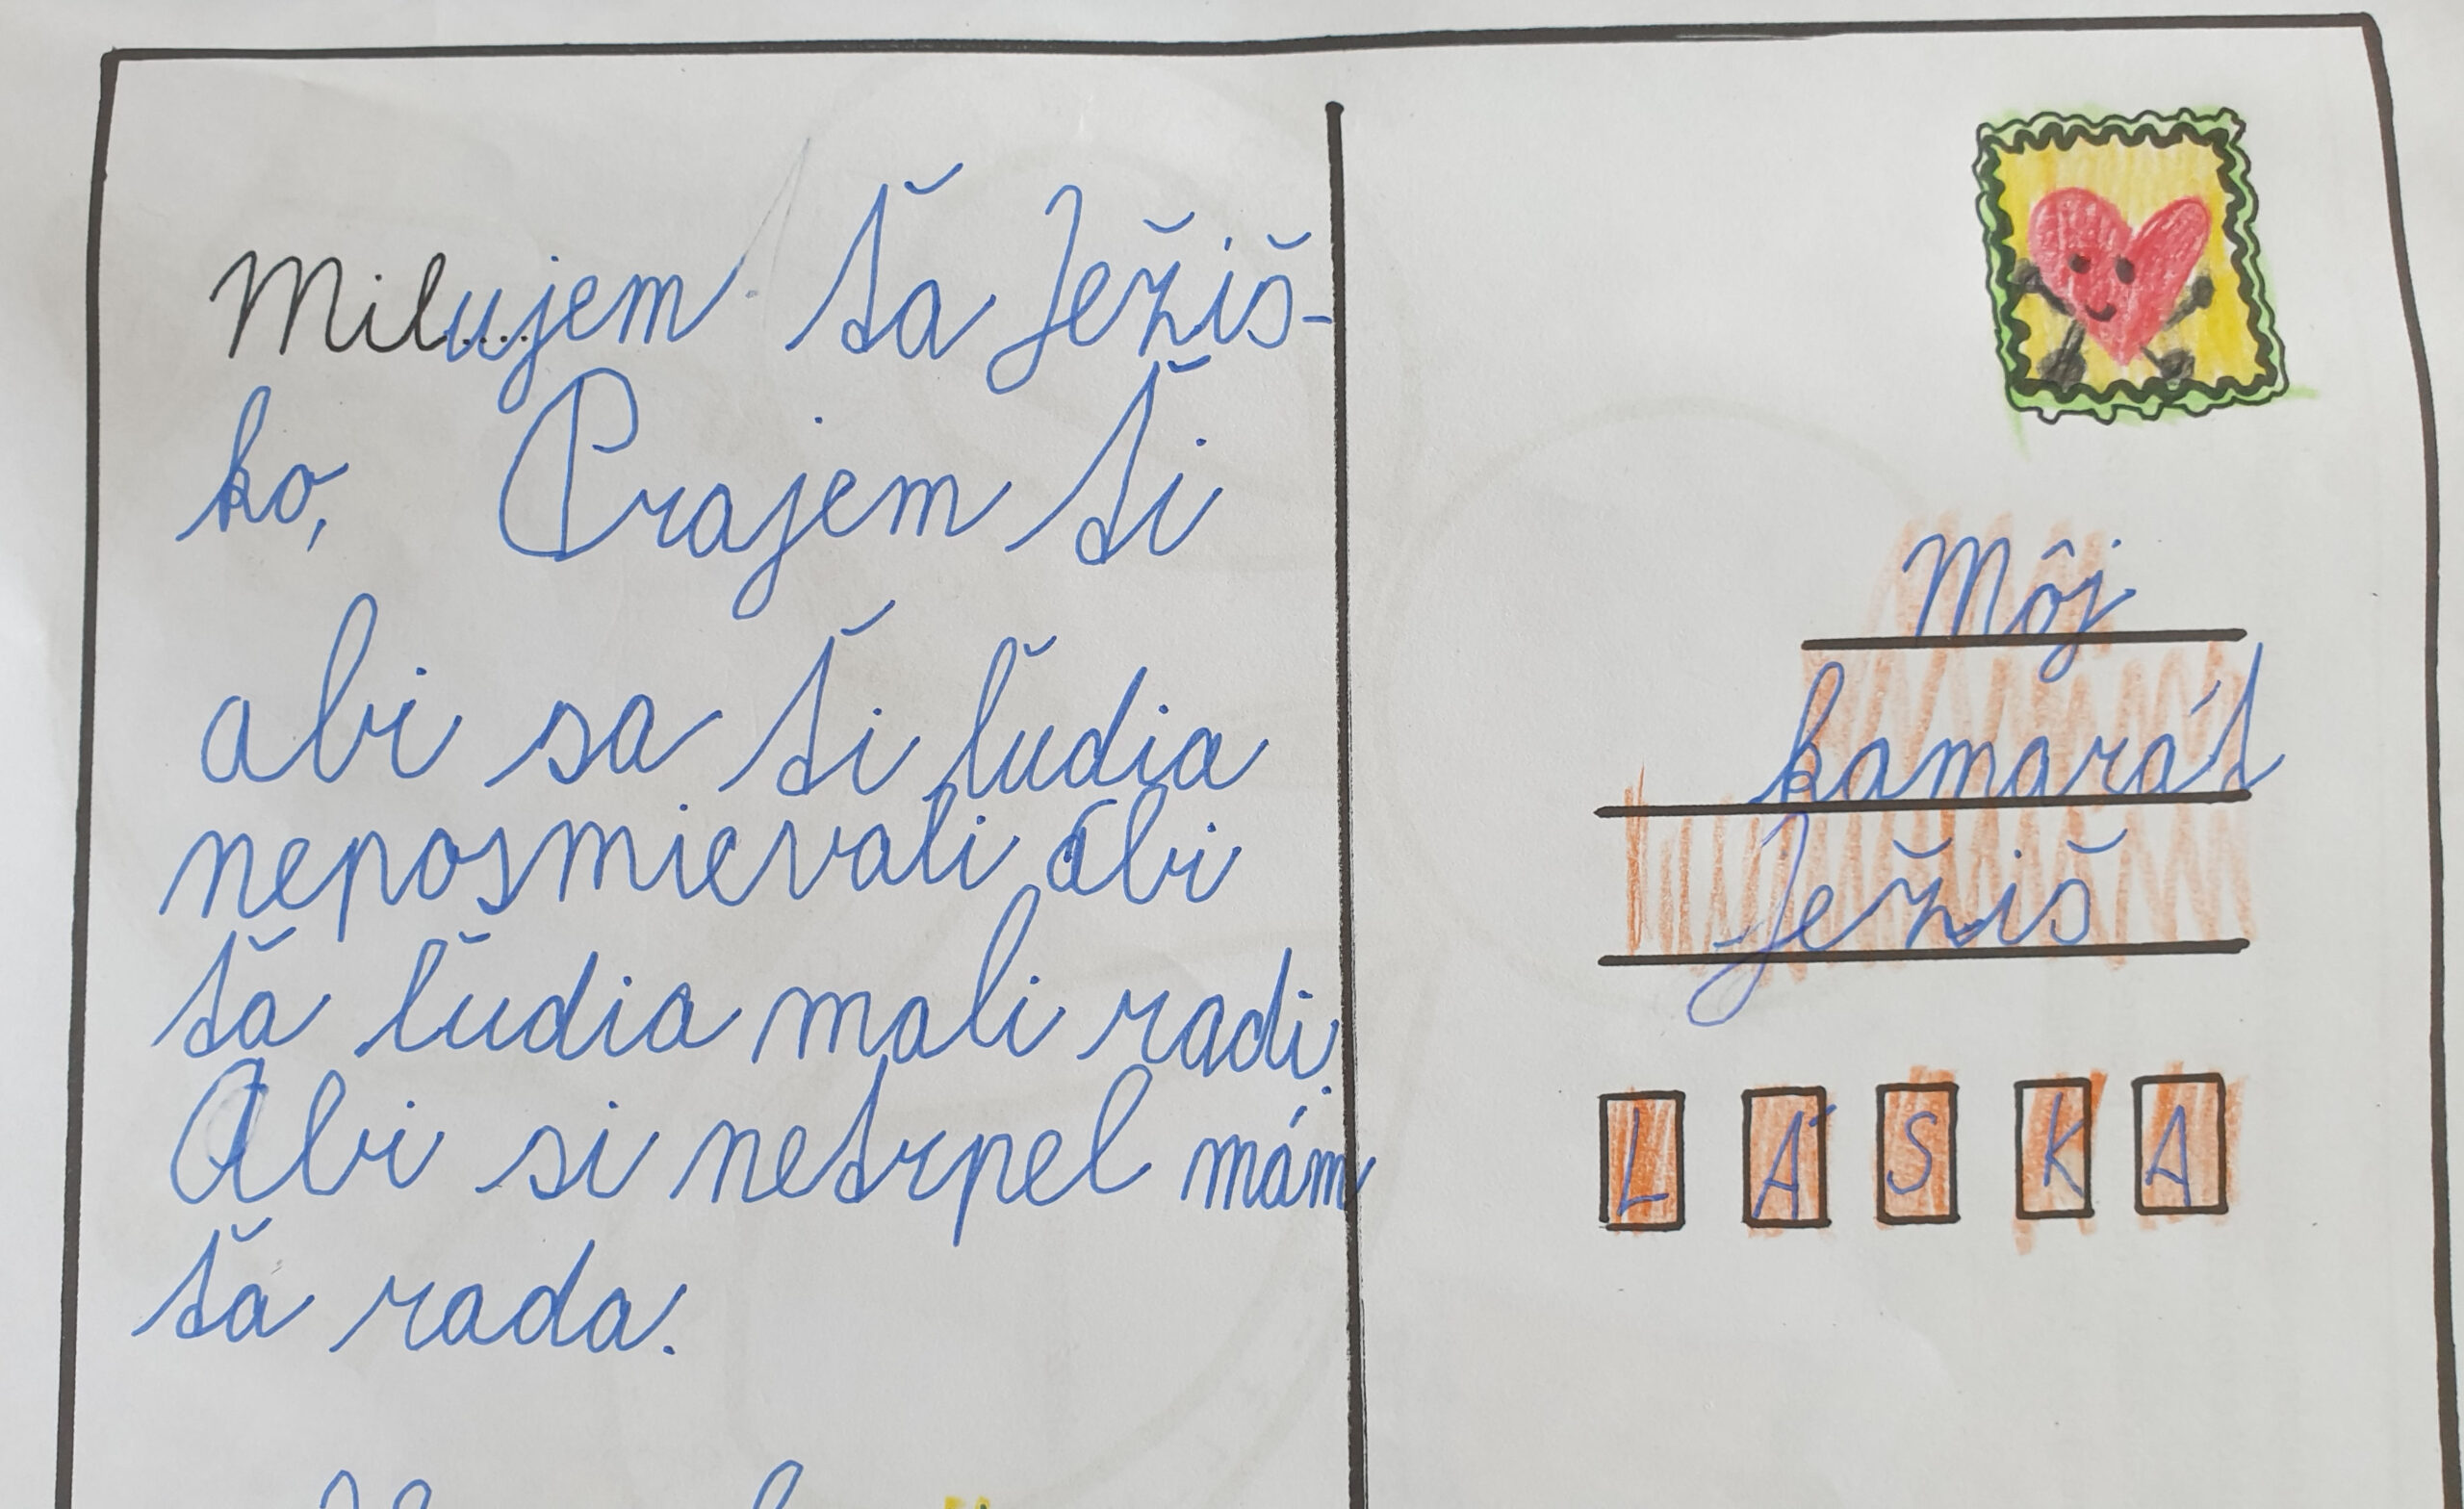 Milujem ťa Ježiš-
ko, Prajem ťi
abi sa ťi ľudia
neposmievali abi
ťa ľudia mali radi.
Abi si netrpel mám
ťa rada.
Môj
kamarát
Ježiš
LÁSKA